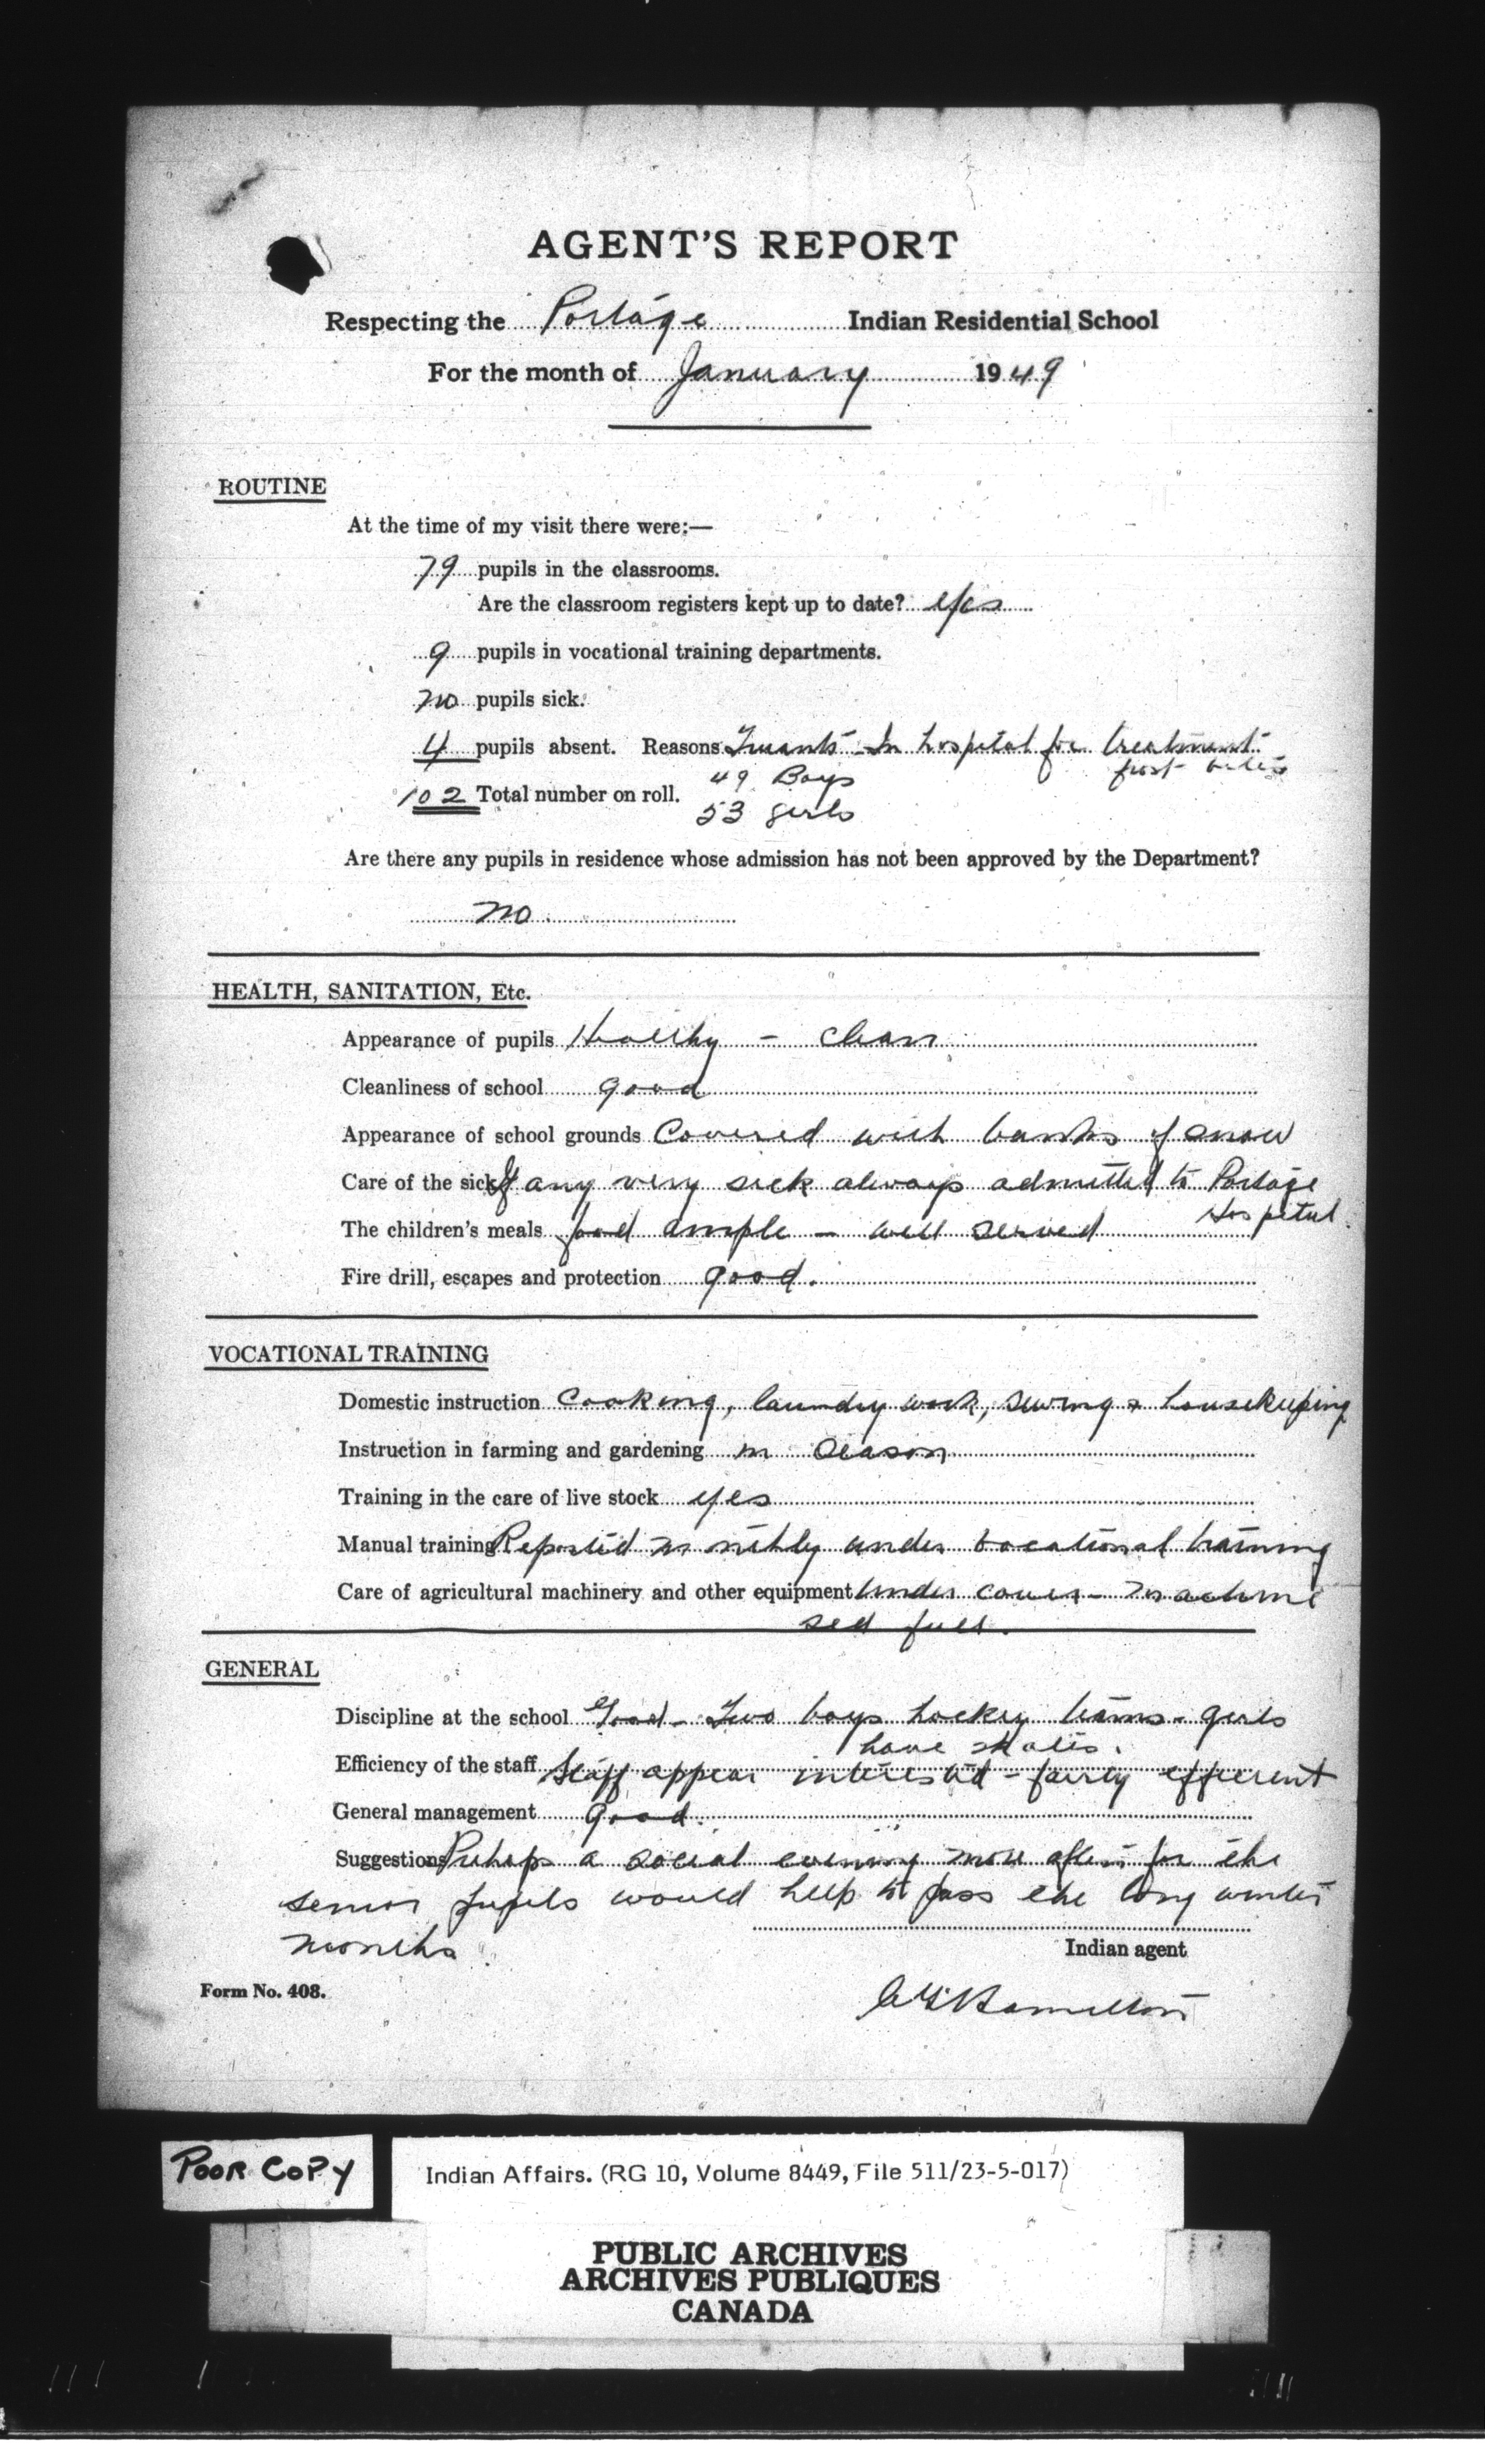 AGENT'S REPORT
Respecting the Portage Indian Residential School
For the month of January 1949
ROUTINE
At the time of my visit there were:—
79 pupils in the classrooms.
Are the classroom registers kept up to date? Yes
9 pupils in vocational training departments.
no pupils sick.
4 pupils absent. Reasons Truants - In hospital for treatment
frost bites
102 Total number on roll. 49 Boys
53 girls
Are there any pupils in residence whose admission has not been approved by the Department?
no.
HEALTH, SANITATION, Etc.
Appearance of pupils Healthy - clean
Cleanliness of school good
Appearance of school grounds Covered with banks of snow
Care of the sick If any very sick always admitted to Portage
Hospital.
The children's meals food ample - well served
Fire drill, escapes and protection good.
VOCATIONAL TRAINING
Domestic instruction Cooking, laundry work, sewing & housekeeping
Instruction in farming and gardening in season
Training in the care of live stock yes
Manual training Reported monthly under vocational training
Care of agricultural machinery and other equipment Under cover - machine
shed full.
GENERAL
Discipline at the school Good - Two boys hockey teams - girls
have skates.
Efficiency of the staff Staff appear interested - fairly efficient
General management good.
Suggestions Perhaps a social evening more often for the
senior pupils would help to pass the long winter
months
Indian agent
Form No. 408.
Hamilton
POOR COPY
Indian Affairs. (RG 10, Volume 8449, File 511/23-5-017)
PUBLIC ARCHIVES
ARCHIVES PUBLIQUES
CANADA